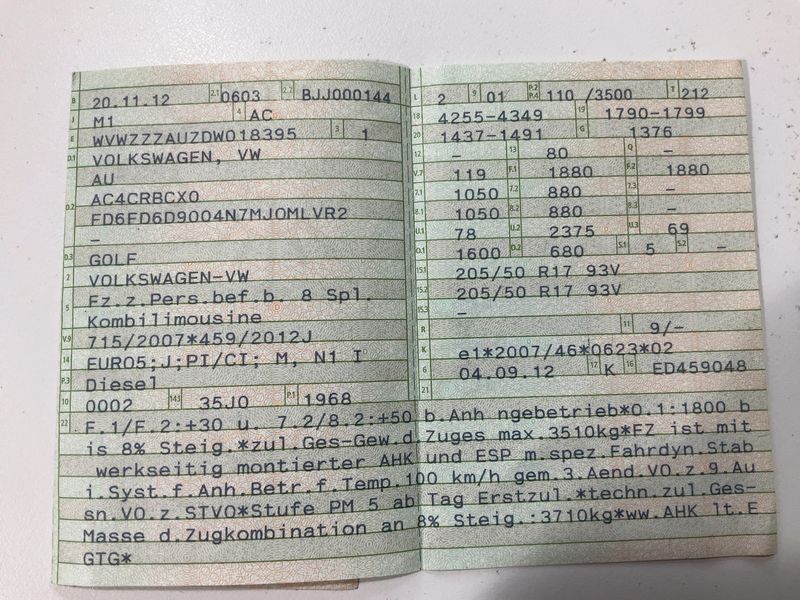 B 20.11.12 2.1 0603 2.2 BJJ000144
J M1 4 AC
E WVWZZZAUZDW018395 3 1
D.1 VOLKSWAGEN, VW
AU
D.2 AC4CRBCX0
FD6FD6D9004N7MJOMLVR2
–
D.3 GOLF
2 VOLKSWAGEN-VW
5 Fz.z.Pers.bef.b. 8 Spl.
Kombilimousine
V.9 715/2007*459/2012J
14 EURO5;J;PI/CI; M, N1 I
P.3 Diesel
10 0002 14.1 35J0 P.1 1968
L 2 9 01 P.2 P.4 110 /3500 T 212
18 4255-4349 19 1790-1799
20 1437-1491 G 1376
12 – 13 80 Q –
V.7 119 F.1 1880 F.2 1880
7.1 1050 7.2 880 7.3 –
8.1 1050 8.2 880 8.3 –
U.1 78 U.2 2375 U.3 69
O.1 1600 O.2 680 S.1 5 S.2 –
15.1 205/50 R17 93V
15.2 205/50 R17 93V
15.3 –
R 11 9/-
K e1*2007/46*0623*02
6 04.09.12 17 K 16 ED459048
21
22 F.1/F.2:+30 u. 7.2/8.2:+50 b.Anh ngebetrieb*O.1:1800 b
is 8% Steig.*zul.Ges-Gew.d.Zuges max.3510kg*FZ ist mit
werkseitig montierter AHK und ESP m.spez.Fahrdyn.Stab
i.Syst.f.Anh.Betr.f.Temp.100 km/h gem.3.Aend.VO.z.9.Au
sn.VO.z.STVO*Stufe PM 5 ab Tag Erstzul.*techn.zul.Ges-
Masse d.Zugkombination an 8% Steig.:3710kg*ww.AHK lt.E
GTG*